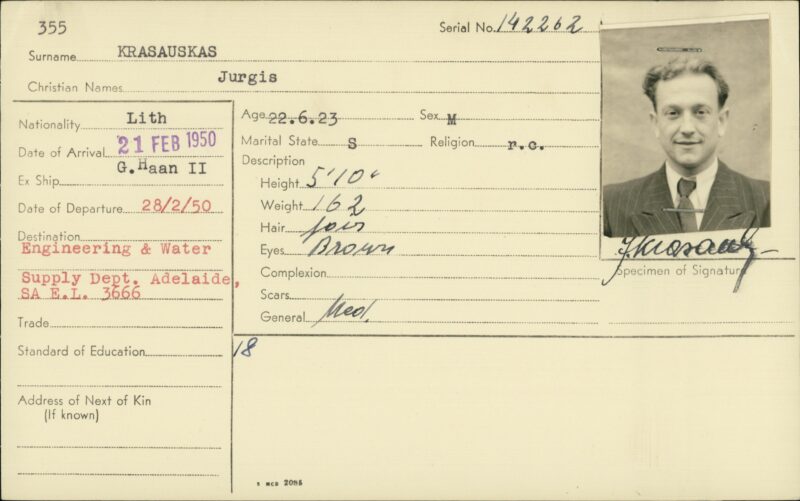 355
Serial No. 142262
Surname KRASAUSKAS
Christian Names Jurgis
Nationality Lith
Date of Arrival 21 FEB 1950
Ex Ship G.Haan II
Date of Departure 28/2/50
Destination
Engineering & Water
Supply Dept. Adelaide,
SA E.L. 3666
Trade
Standard of Education
Address of Next of Kin
(If known)
Age 22.6.23 Sex M
Marital State S Religion r.c.
Description
Height 5'10"
Weight 162
Hair fair
Eyes Brown
Complexion
Scars
General Med.
18
J. Krasauskas
Specimen of Signature
2085